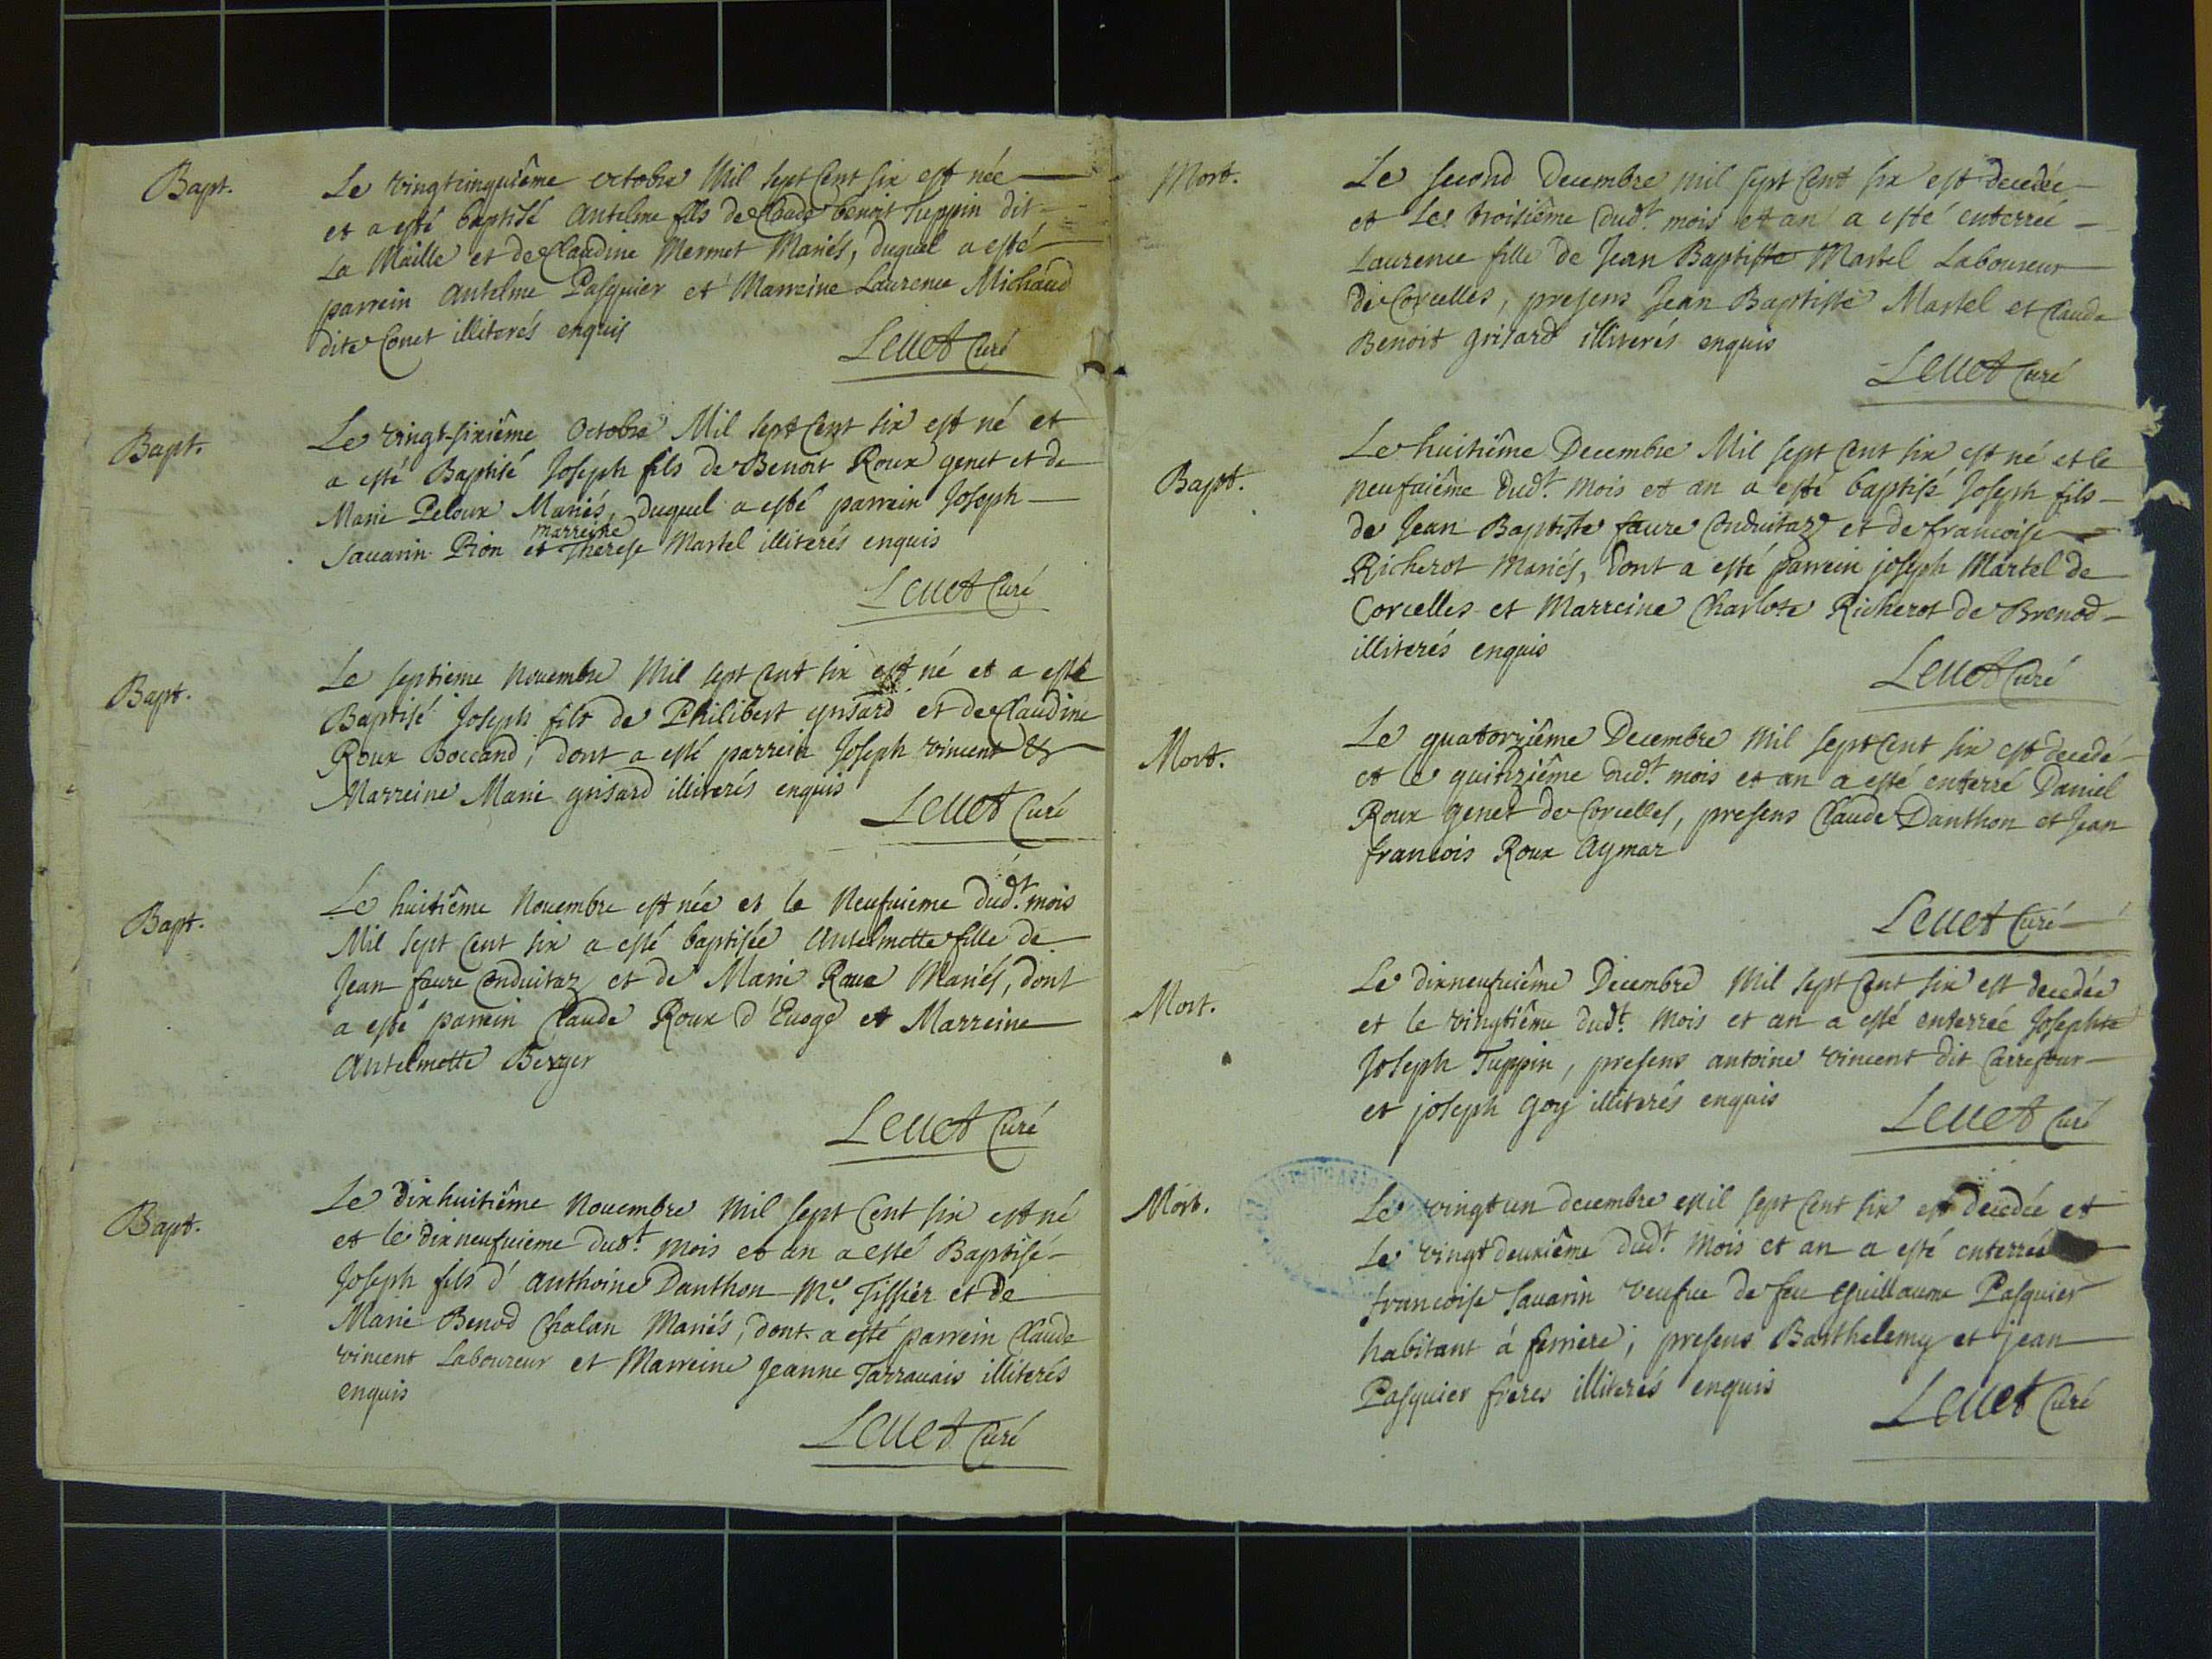 Bapt.
Le vingtcinquiême octobre Mil sept Cent six est née
et a esté baptisé Antelme fils de Claude benoit Tuppin dit
La Maille et de Claudine Mermet Mariés, duquel a esté
parrein Antelme Pasquier et Marreine Laurence Michaud
dite Conet illiterés enquis
Leuet Curé
Bapt.
Le vingt-sixiême Octobre Mil sept Cent six est né et
a esté Baptisé Joseph fils de Benoit Roux genet et de
Marie Peloux Mariés, duquel a esté parrein Joseph
marreine
Sauarin Pion et Therese Martel illiterés enquis
Leuet Curé
Bapt.
Le septieme Nouembre Mil sept Cent six est né et a esté
Baptisé Joseph fils de Philibert grisard et de Claudine
Roux Boccand, dont a esté parrein Joseph vincent &
Marreine Marie grisard illiterés enquis
Leuet Curé
Bapt.
Le huitiême Nouembre est née et le Neufuieme dud.t mois
Mil sept Cent six a ésté baptisée Antelmette fille de
Jean faure Conduitaz et de Marie Roux Mariés, dont
a esté parrein Claude Roux d'Euoge et Marreine
Antelmette Berger
Leuet Curé
Bapt.
Le dixhuitiême Nouembre Mil sept Cent six est né
et le dixneufuieme dud.t mois et an a esté Baptisé
Joseph fils d'Anthoine Danthon M.e Tissier et de
Marie Benod Chalan Mariés, dont a esté parrein Claude
vincent Laboureur et Marreine Jeanne Tarrauais illiterés
enquis
Leuet Curé
Mort.
Le second Decembre Mil sept Cent six est decedée
et le troisiême dud.t mois et an a esté enterreé
Laurence fille de Jean Baptiste Martel Laboureur
de Corcelles, presens Jean Baptiste Martel et Claude
Benoit grisard illiterés enquis
Leuet Curé
Bapt.
Le huitiême Decembre Mil sept Cent six est né et le
neufuiême dud.t mois et an a esté baptisé Joseph fils
de Jean Baptiste faure Conduitaz et de francoise
Richerot Mariés, dont a esté parrein joseph Martel de
Corcelles et Marreine Charlote Richerot de Brenod
illiterés enquis
Leuet Curé
Mort.
Le quatorziême Decembre Mil sept Cent six est decedé
et le quinziéme dud.t mois et an a esté enterré Daniel
Roux genet de Corcelles, presens Claude Danthon et Jean
francois Roux Aymar
Leuet Curé
Mort.
Le dixneufuiême Decembre Mil sept Cent six est decedée
et le vingtiême dud.t Mois et an a esté enterrée Josephte
Joseph Tuppin, presens antoine vincent dit Carrefour
et joseph goy illiterés enquis
Leuet Curé
Mort.
Le vingt un decembre Mil sept Cent six est decedée et
Le vingt deuxiême dud.t Mois et an a esté enterrée
francoise Sauarin veufue de feu Guillaume Pasquier
habitant á ferriere, presens Barthelemy et jean
Pasquier freres illiterés enquis
Leuet Curé